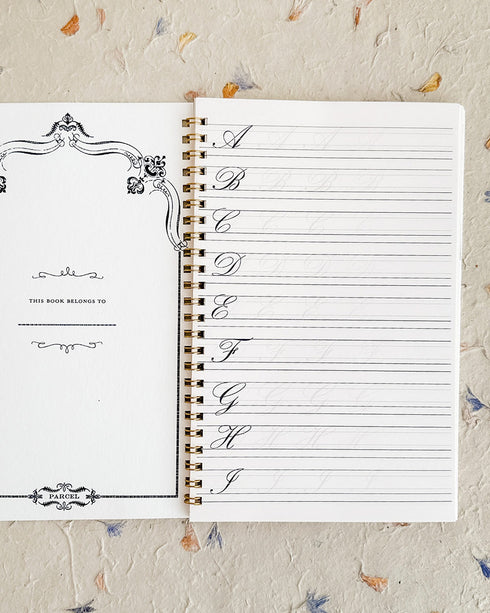 THIS BOOK BELONGS TO
PARCEL
A A A A
B B B B
C C C C
D D D D
E E E E
F F F F
G G G G
H H H H
I I I I